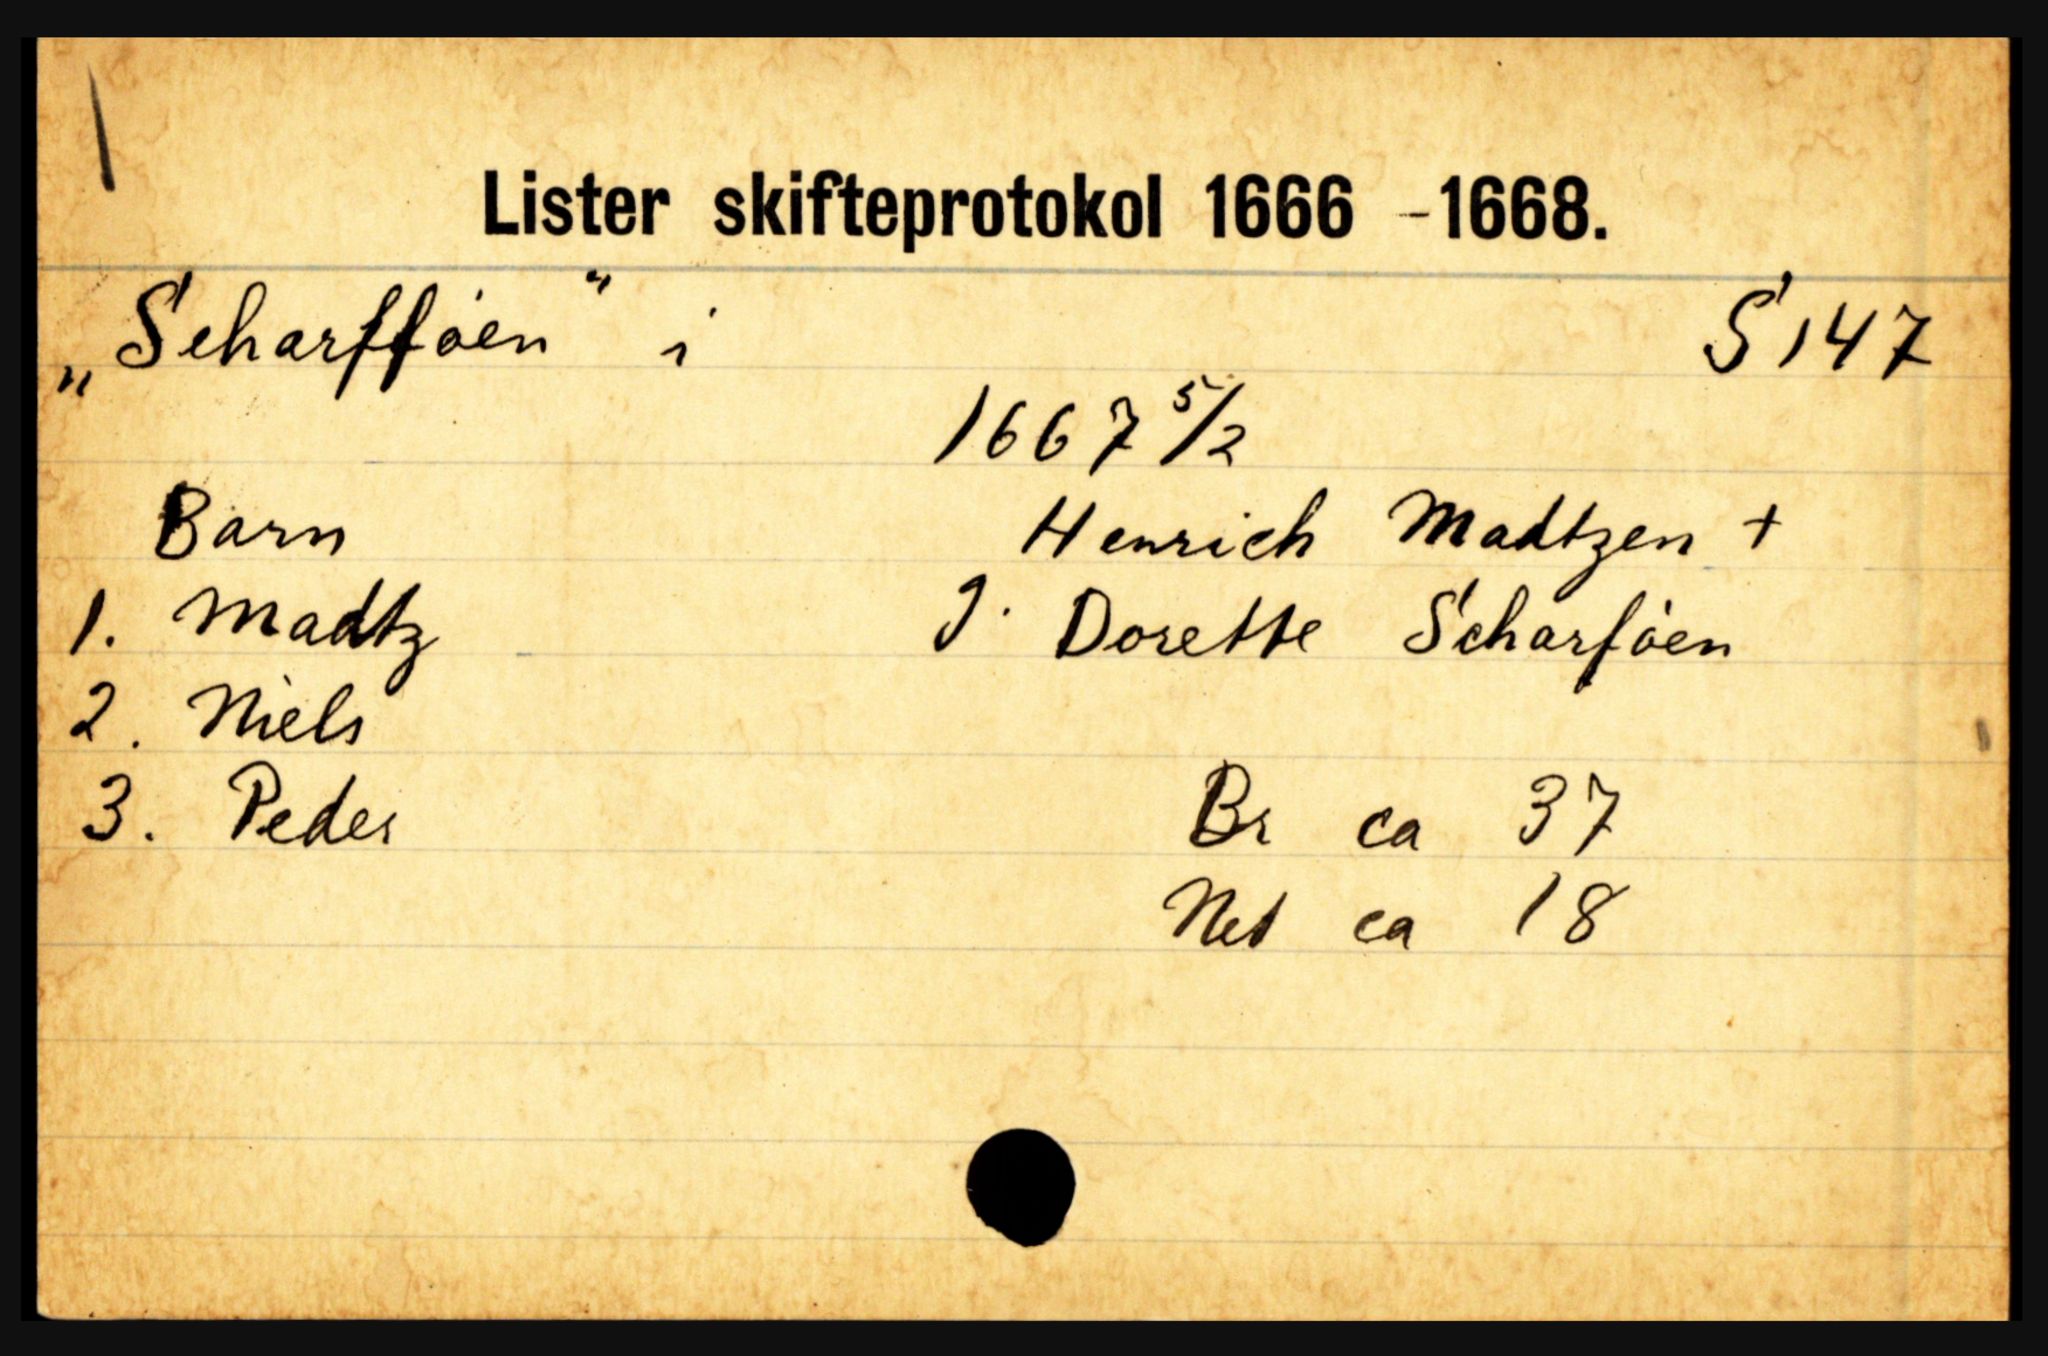 Lister skifteprotokol 1666 - 1668.
„Scharfføen“ i S 147
1667 5/2
Barn Henrich Madtzen +
1. Madtz J. Dorette Scharføen
2. Niels
3. Peder Br ca 37
Net ca 18